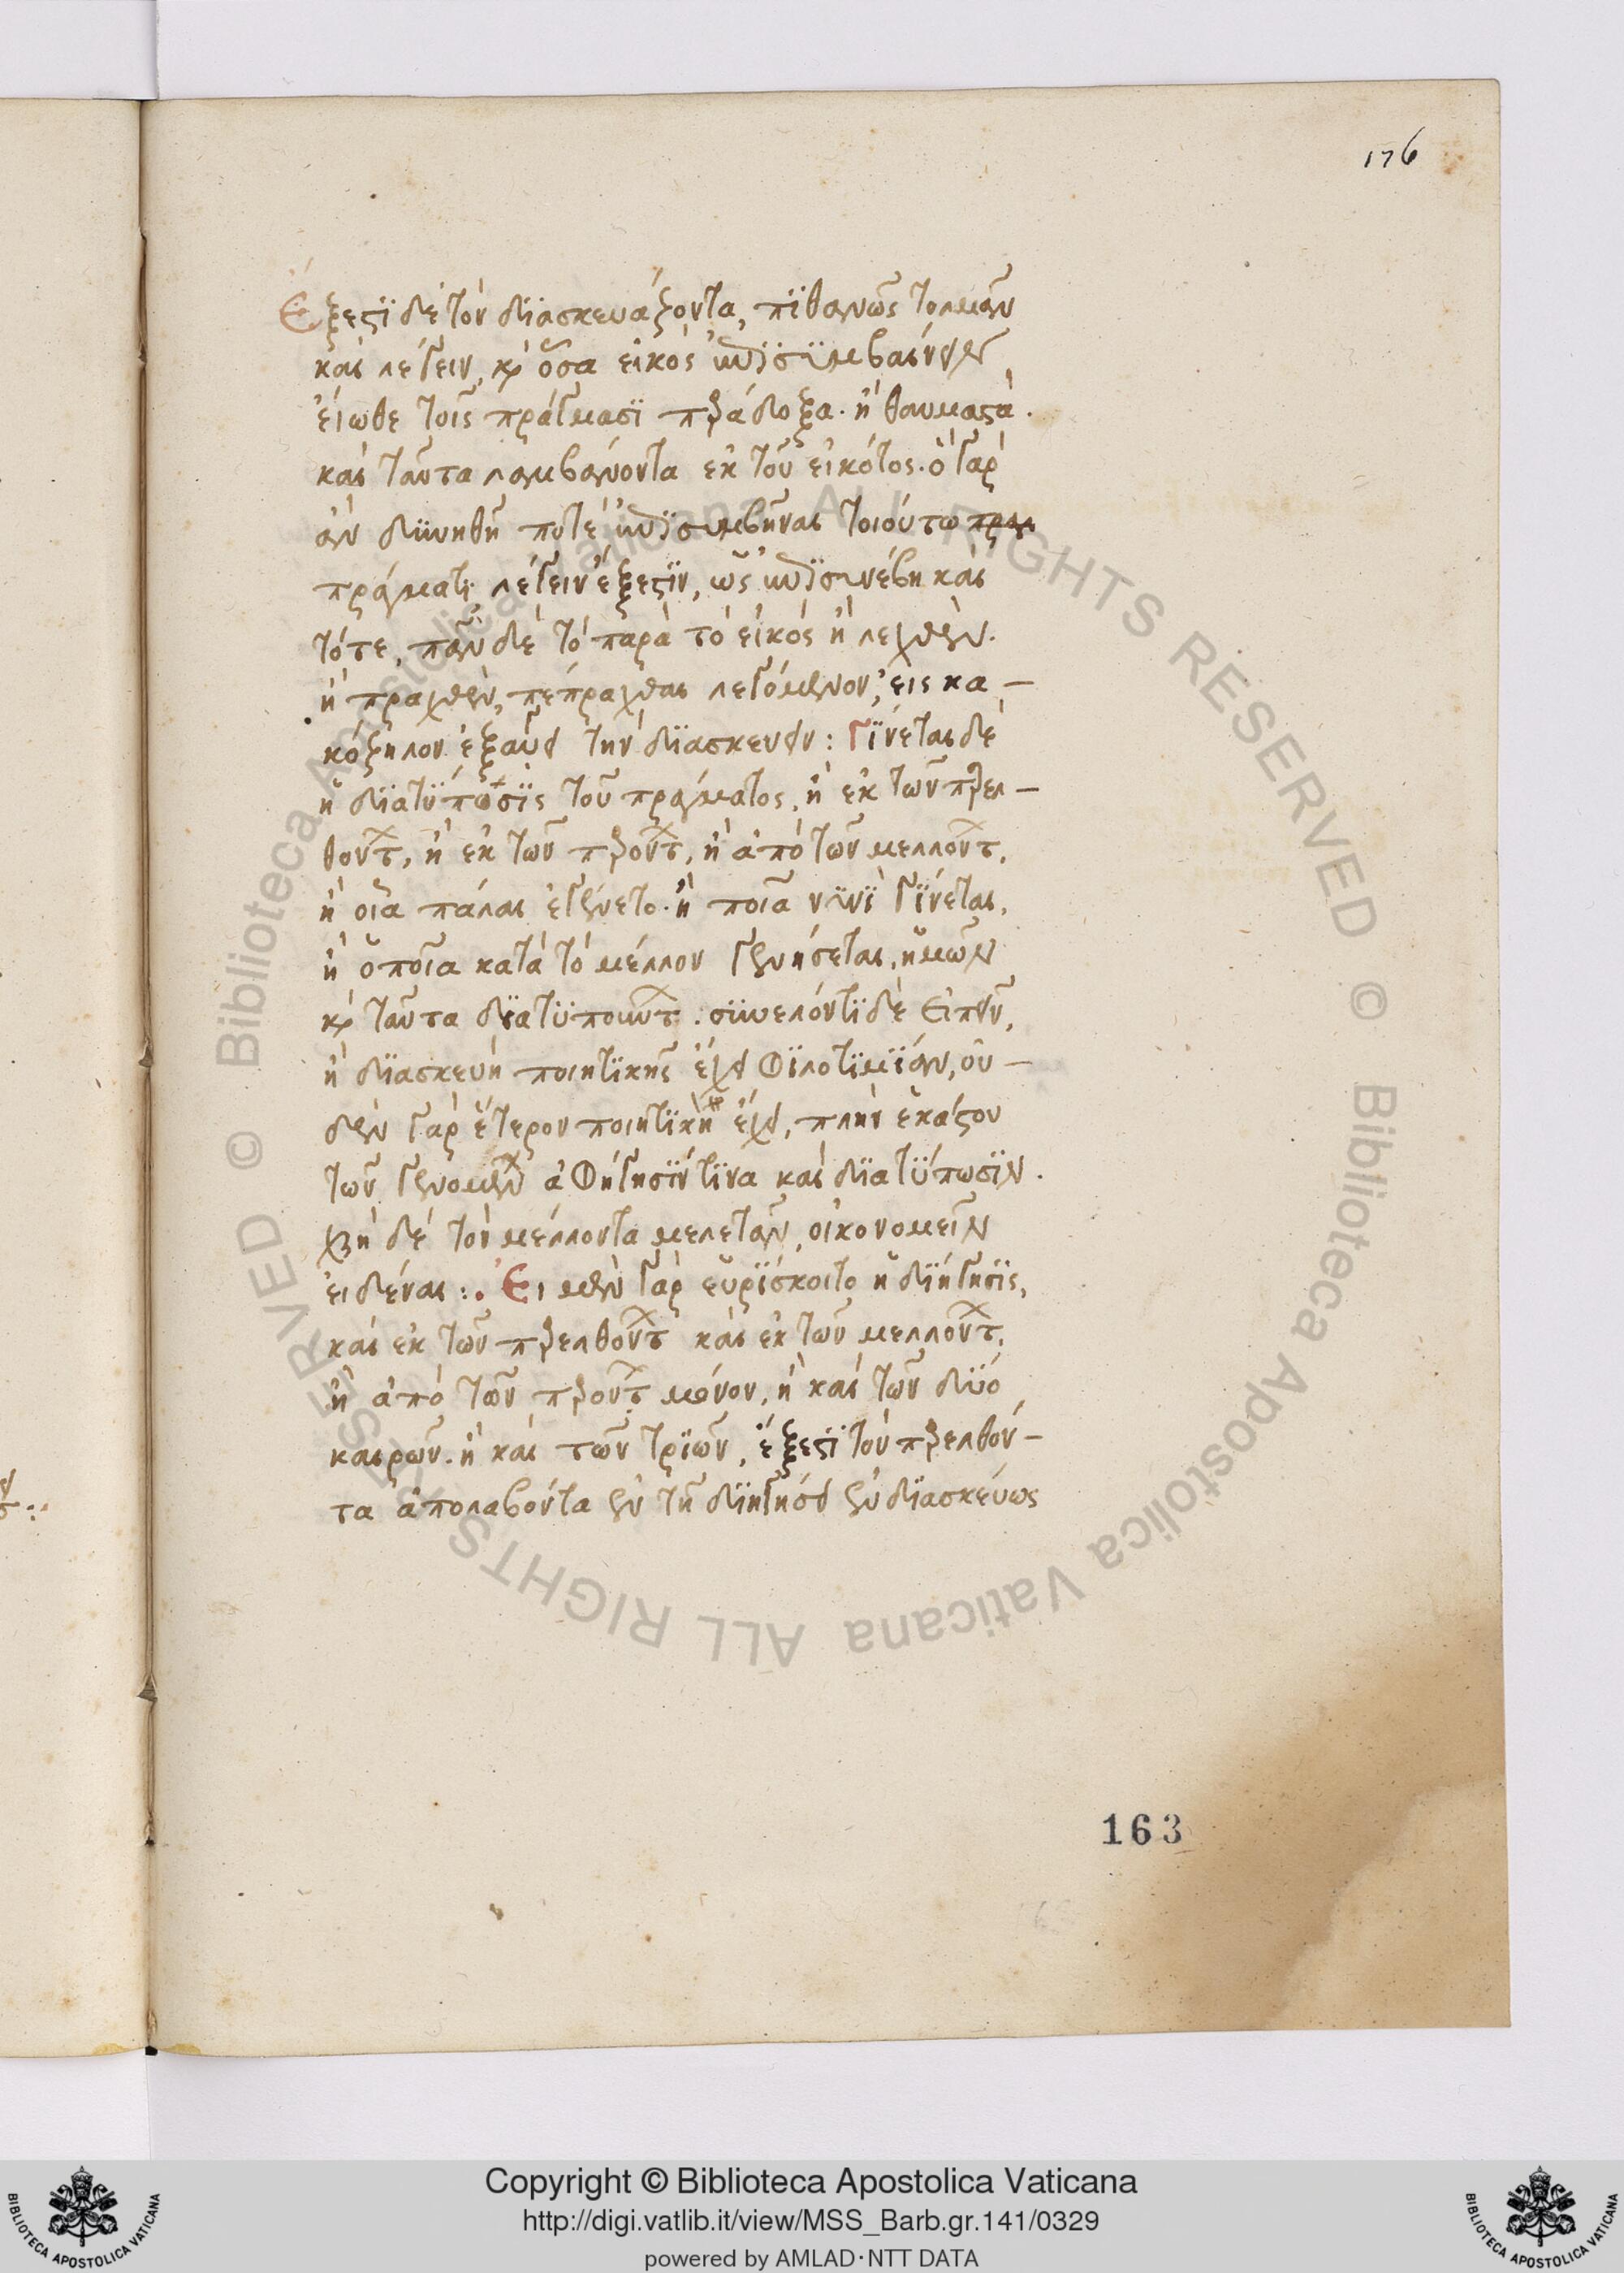 176
Ἔξεστϊ δὲ τὸν δϊασκευάζοντα, πϊθανῶς τολμᾶν
καὶ λέγειν, κ̀ ὅσα εἰκὸς συμβαίνειν
εἴωθε τοῖς πράγμασϊ πράδοξα. ἢ θαυμαστά.
καὶ ταῦτα λαμβάνοντα ἐκ τοῦ εἰκότος. ὃ γὰρ
ἂν δϋνηθῆ ποτὲ συμβῆναι τοιούτω
πράγματι λέγειν ἔξεστϊν, ὡς συνέβη καὶ
τότε, πᾶν δὲ τὸ παρὰ τὸ εἰκὸς ἢ λεχθὲν.
ἢ πραχθὲν, πεπράχθαι λεγόμενον, εἰς κα-
κόζηλον ἐξάγει τὴν δϊασκευήν: Γϊνεται δὲ
ἡ δϊατϋπωσϊς τοῦ πράγματος, ἢ ἐκ τῶν πρελ-
θοντ, ἢ ἐκ τῶν πρόντ, ἢ ἀπὸ τῶν μελλόντ,
ἢ οἷα πάλαι ἐγένετο. ἢ ποῖα νϋνϊ γϊνεται,
ἢ ὁποῖα κατὰ τὸ μέλλον γενήσεται, ἡμῶν
κ̀ ταῦτα δϊατϋπούντ. σϋνελόντϊ δὲ εἰπεῖν,
ἡ δϊασκευὴ ποιητϊκῆς ἔχει φϊλοτϊμϊαν, οὐ-
δὲν γὰρ ἕτερον ποιητϊκὴ ἔχει, πλὴν ἑκάστου
τῶν γενομέν ἀφήγησϊν τϊνα καὶ δϊατϋπωσϊν.
χρὴ δὲ τὸν μέλλοντα μελετᾶν, οἰκονομεῖν
εἰδέναι:. Εἰ μὲν γὰρ εὑρϊσκοιτο ἡ δϊήγησϊς,
καὶ ἐκ τῶν πρελθόντ καὶ ἐκ τῶν μελλόντ,
ἢ ἀπὸ τῶν πρόντ μόνον, ἢ καὶ τῶν δϋο
καιρῶν. ἢ καὶ τῶν τρϊῶν, ἔξεστϊ τὸν πρελθόν-
τα ἀπολαβόντα ἐν τῆ δϊηγήσει ἐνδϊασκεύως
163
© Biblioteca Apostolica Vaticana ALL RIGHTS RESERVED © Biblioteca Apostolica Vaticana ALL RIGHTS RESERVED
Copyright © Biblioteca Apostolica Vaticana
http://digi.vatlib.it/view/MSS_Barb.gr.141/0329
powered by AMLAD·NTT DATA
BIBLIOTECA APOSTOLICA VATICANA
BIBLIOTECA APOSTOLICA VATICANA